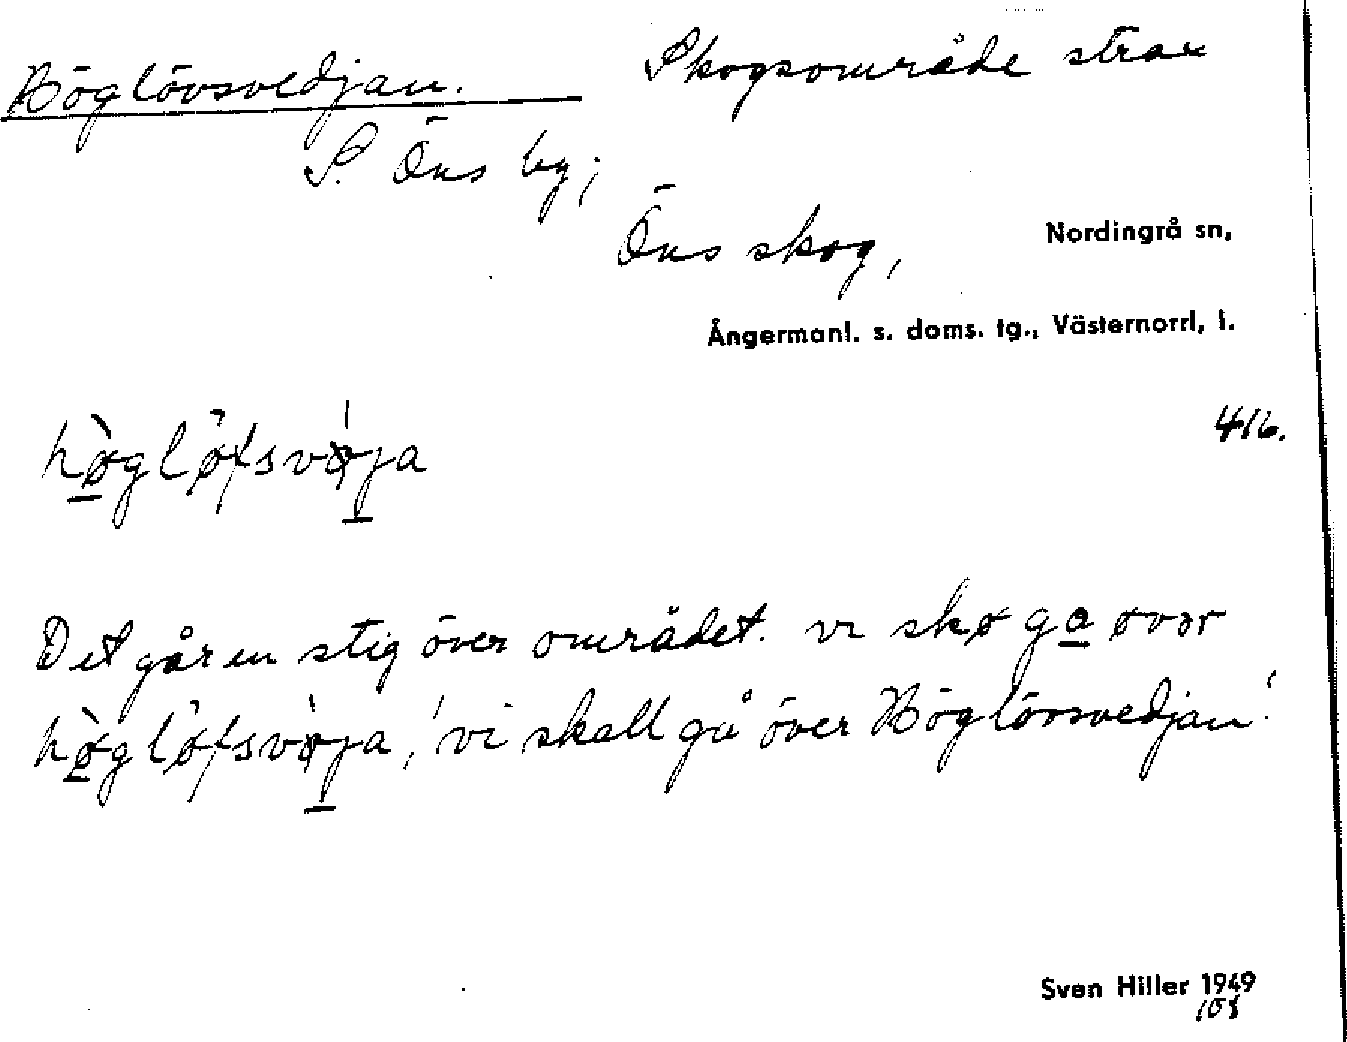 Höglövsvedjan. Skogsområde strax
S. Öns by;
Öns skog, Nordingrå sn,
Ångermanl. s. doms. tg., Västernorrl, l.
416.
Det går en stig över området. vi skø ga øvər
'vi skall gå över Höglövsvedjan'.
Sven Hiller 1949